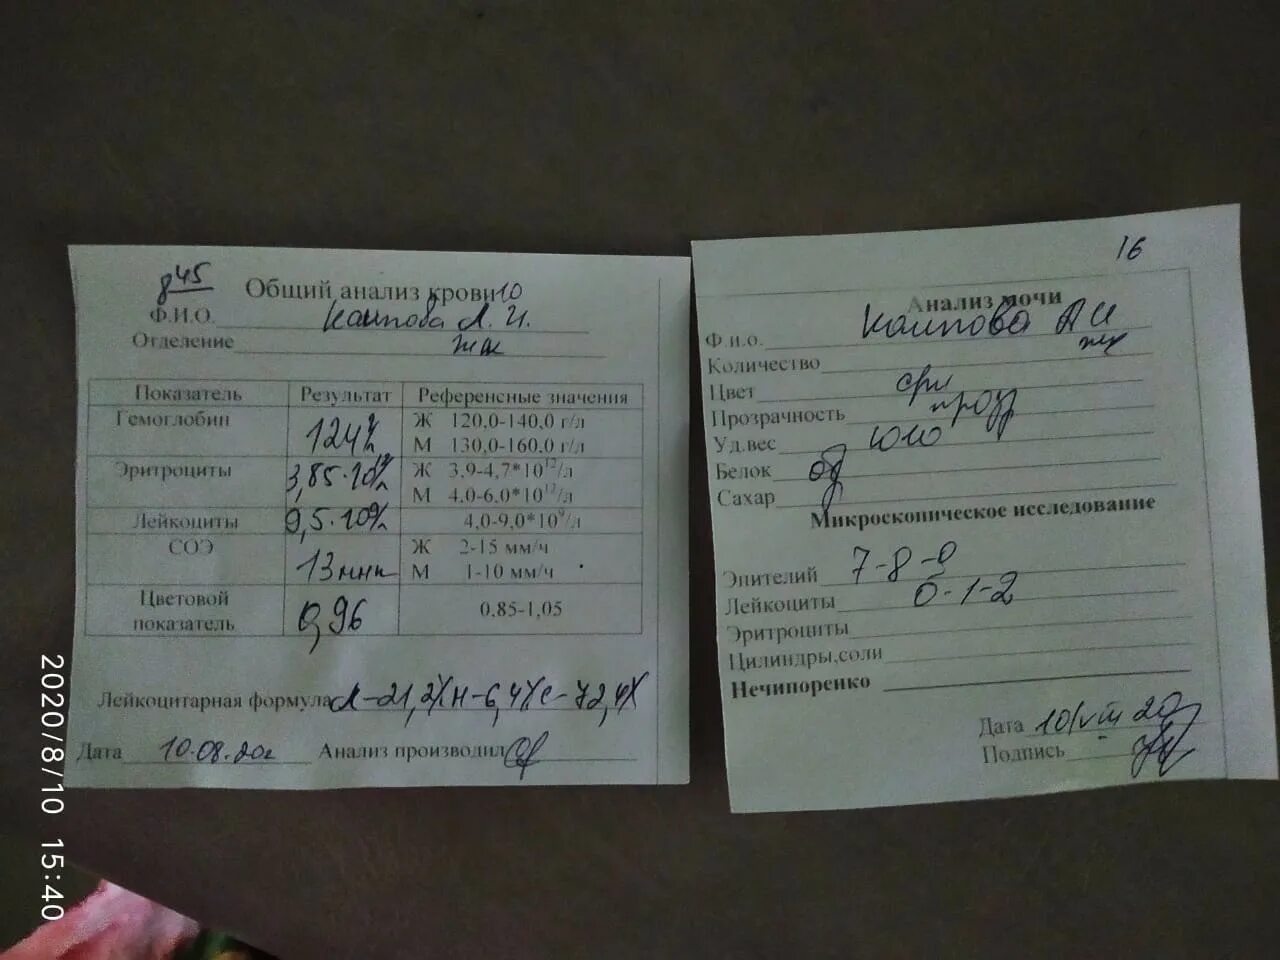 845
Общий анализ крови 10
Ф.И.О. Каипова А. И.
Отделение жк
Показатель Результат Референсные значения
Гемоглобин 124 г/л Ж 120,0-140,0 г/л
М 130,0-160,0 г/л
Эритроциты 3,85·10¹²/л Ж 3,9-4,7*10¹²/л
М 4,0-6,0*10¹²/л
Лейкоциты 9,5·10⁹/л 4,0-9,0*10⁹/л
СОЭ 13 мм Ж 2-15 мм/ч
М 1-10 мм/ч
Цветовой показатель 0,96 0,85-1,05
Лейкоцитарная формула Л-21,2% Н-6,4% С-72,4%
Дата 10.08.20г Анализ производил
16
Анализ мочи
Ф.и.о. Каипова А И
жк
Количество
Цвет
Прозрачность прозр
Уд.вес 1010
Белок
Сахар
Микроскопическое исследование
Эпителий 7-8-9
Лейкоциты 0-1-2
Эритроциты
Цилиндры,соли
Нечипоренко
Дата 10/VIII 20
Подпись
2020/8/10 15:40